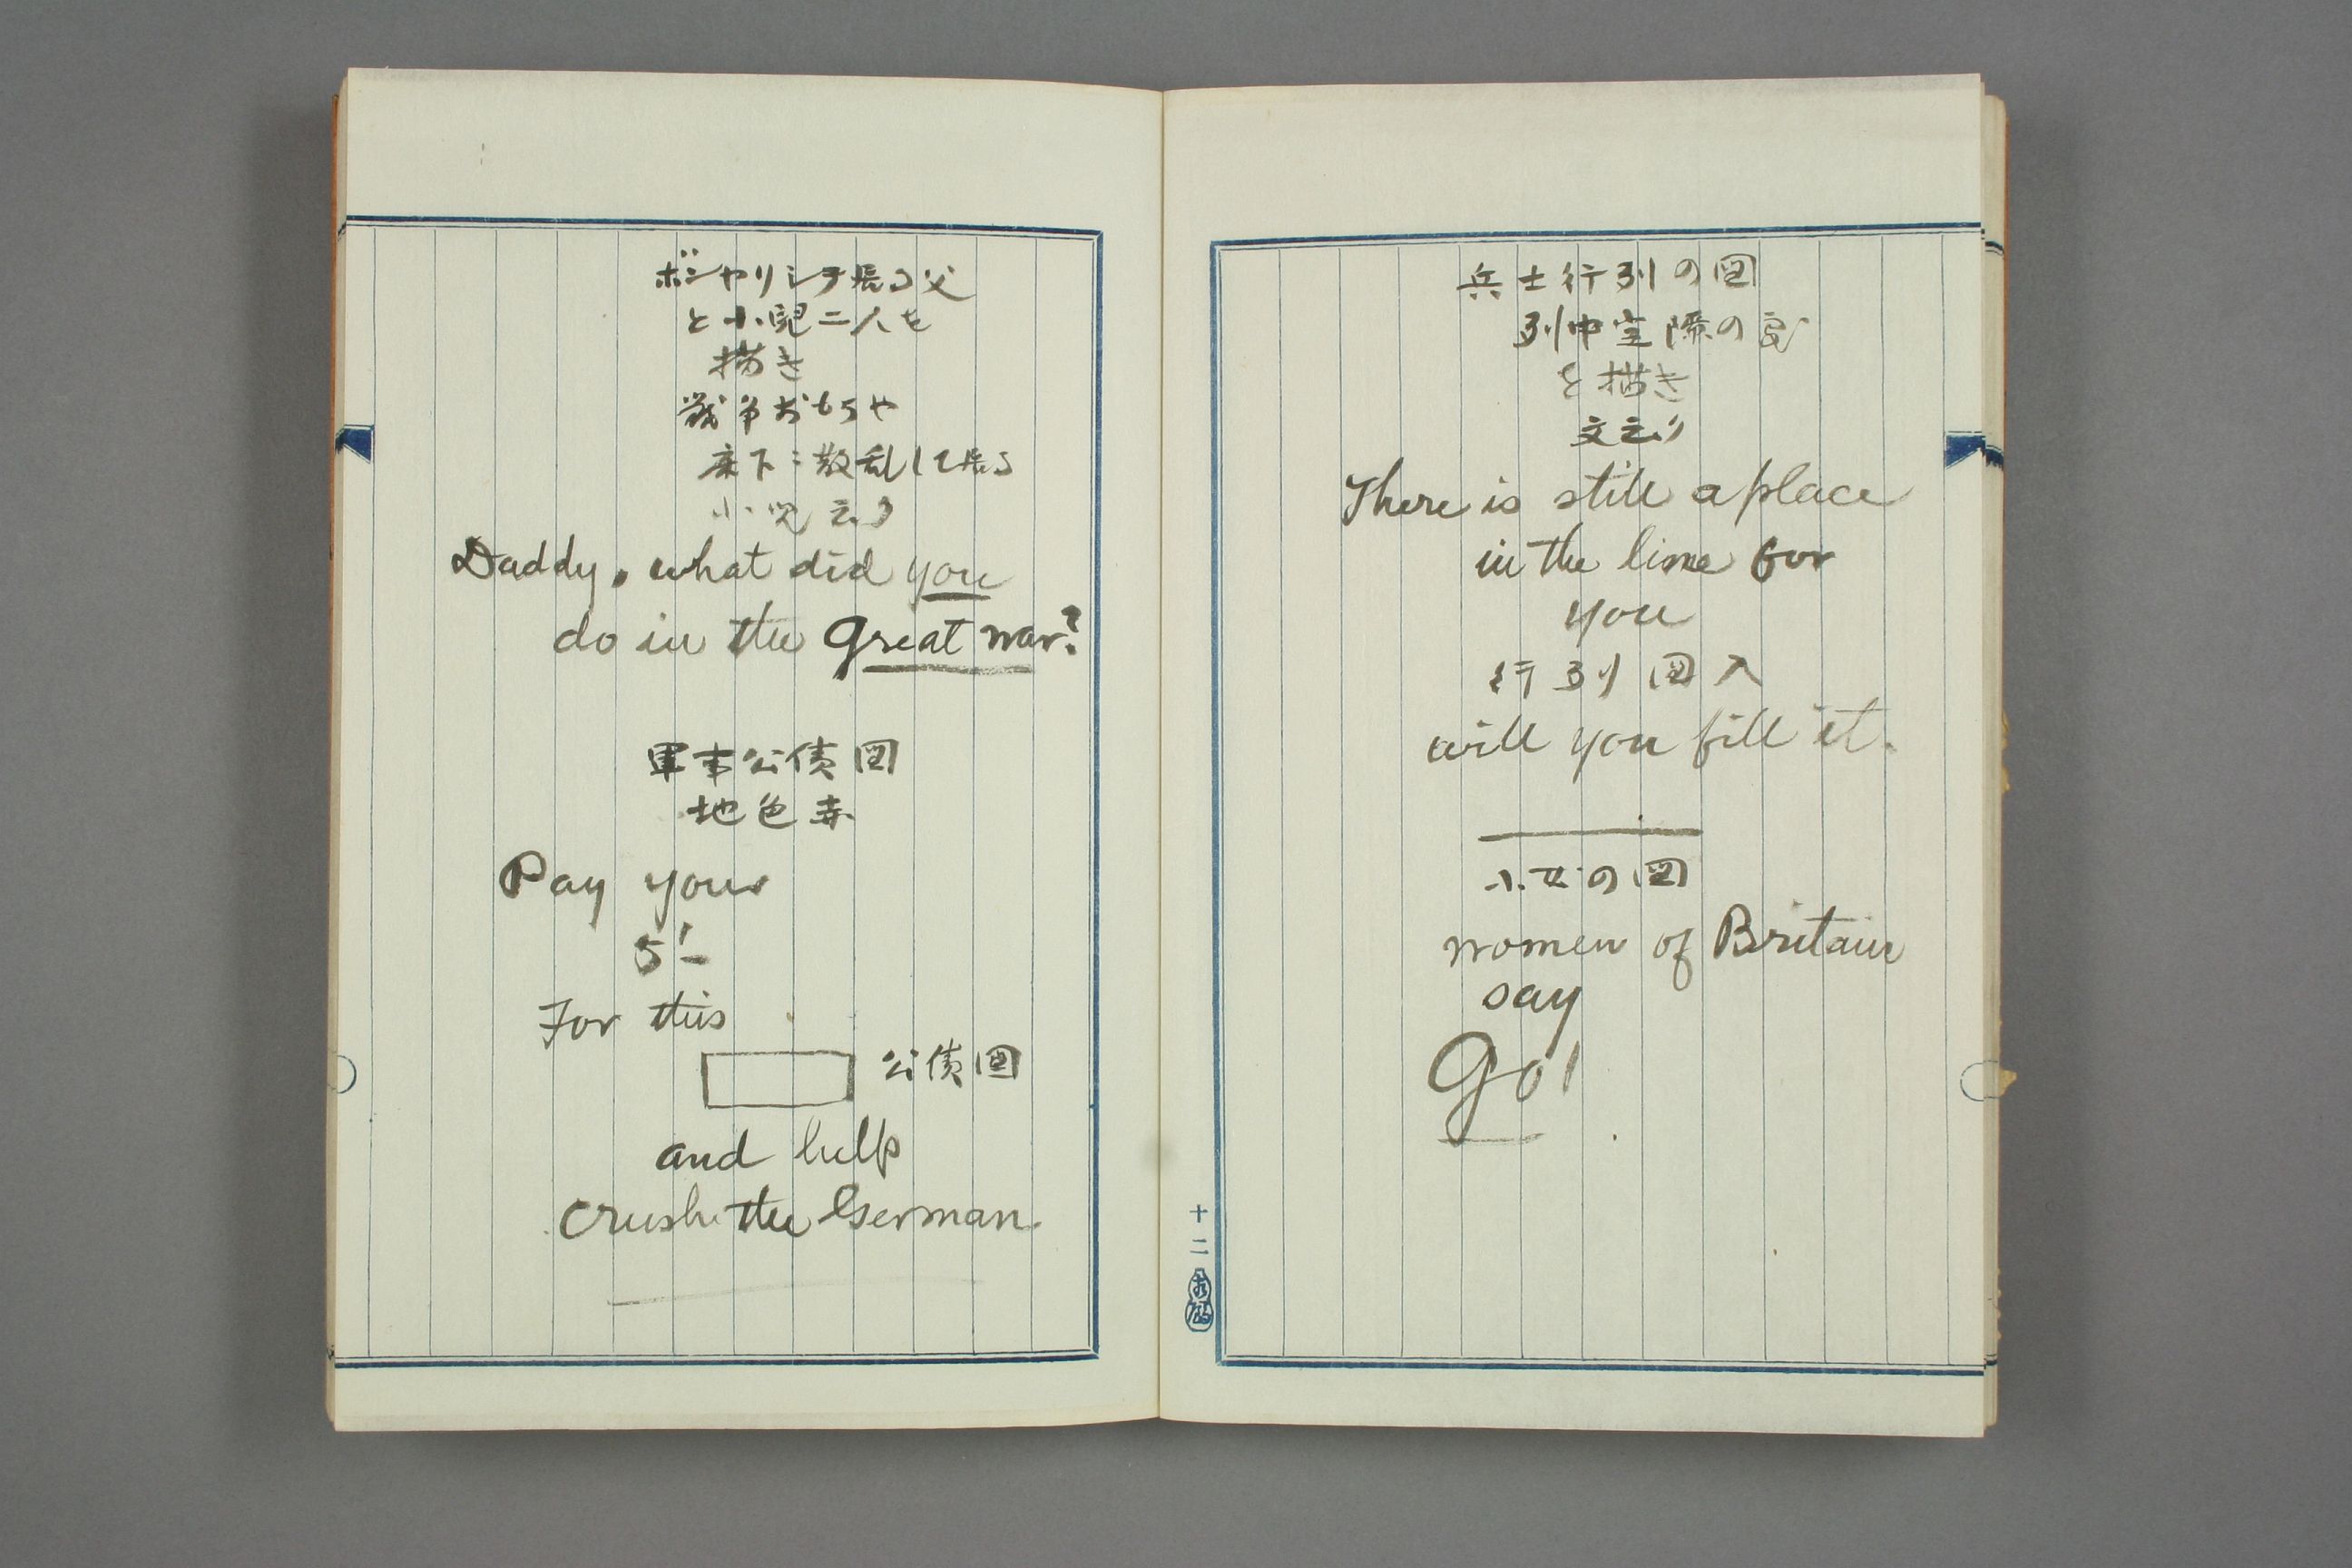 ボンヤリシテ居る父
と小児二人を
描き
戦争おもちや
床下ニ散乱して居る
小児云ふ
Daddy, what did you
do in the great war?
軍事公債図
地色赤
Pay your
5/-
For this
公債図
and help
crush the German.
兵士行列の図
列中空隙の
を描き
文云ふ
There is still a place
in the line for
you
行列図入
will you fill it.
小女の図
women of Britain
say
Go!
十二